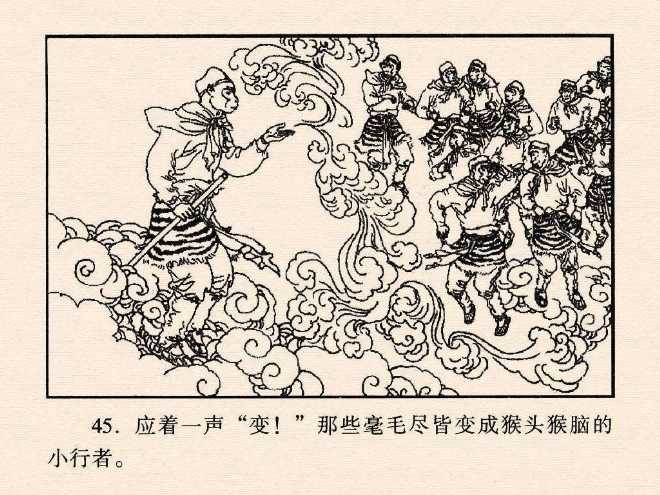 45. 应着一声“变！”那些毫毛尽皆变成猴头猴脑的
小行者。